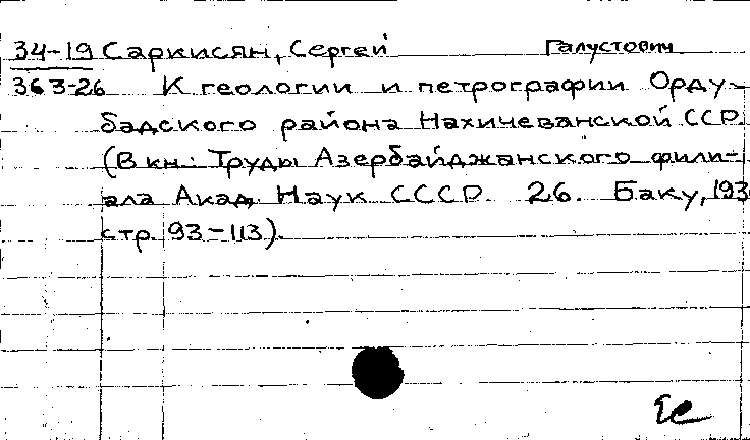 34-19 Саркисян, Сергей Галустович
363-26 К геологии и петрографии Орду-
бадского района Нахичеванской ССР.
(В кн.: Труды Азербайджанского фили-
ала Акад. Наук СССР. 26. Баку, 193
стр. 93-113).